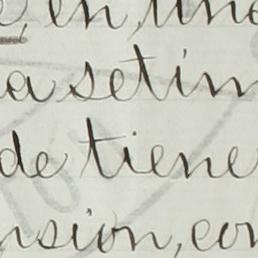 , en, une
a setim
de tiene
nsion, con